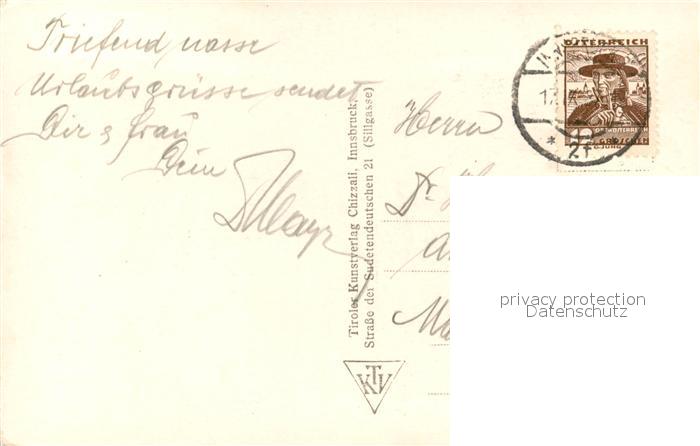 Triefend nasse
Urlaubsgrüsse sendet
Dir & Frau
Dein
Mayr
Tiroler Kunstverlag Chizzali, Innsbruck,
Straße der Sudetendeutschen 21 (Sillgasse)
KTV
Herrn
Dr.
ÖSTERREICH
12
privacy protection
Datenschutz